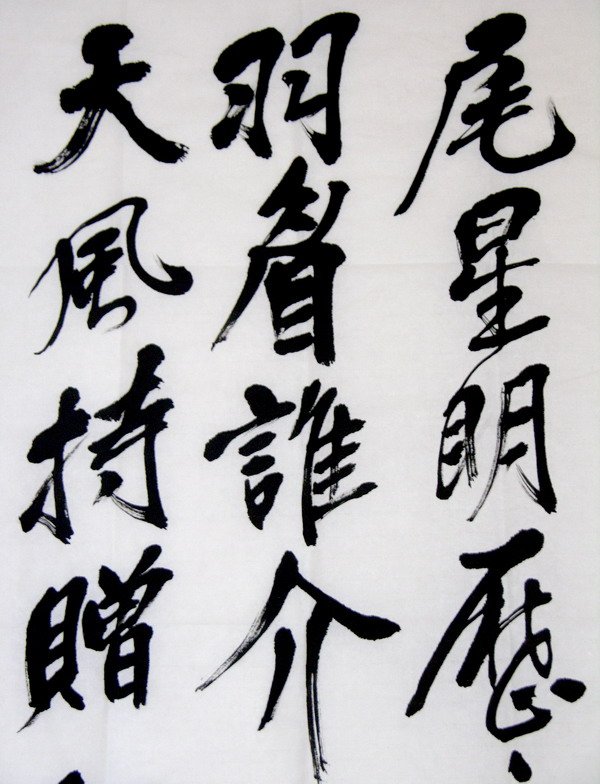 尾星明歷
羽誰介
天風持贈